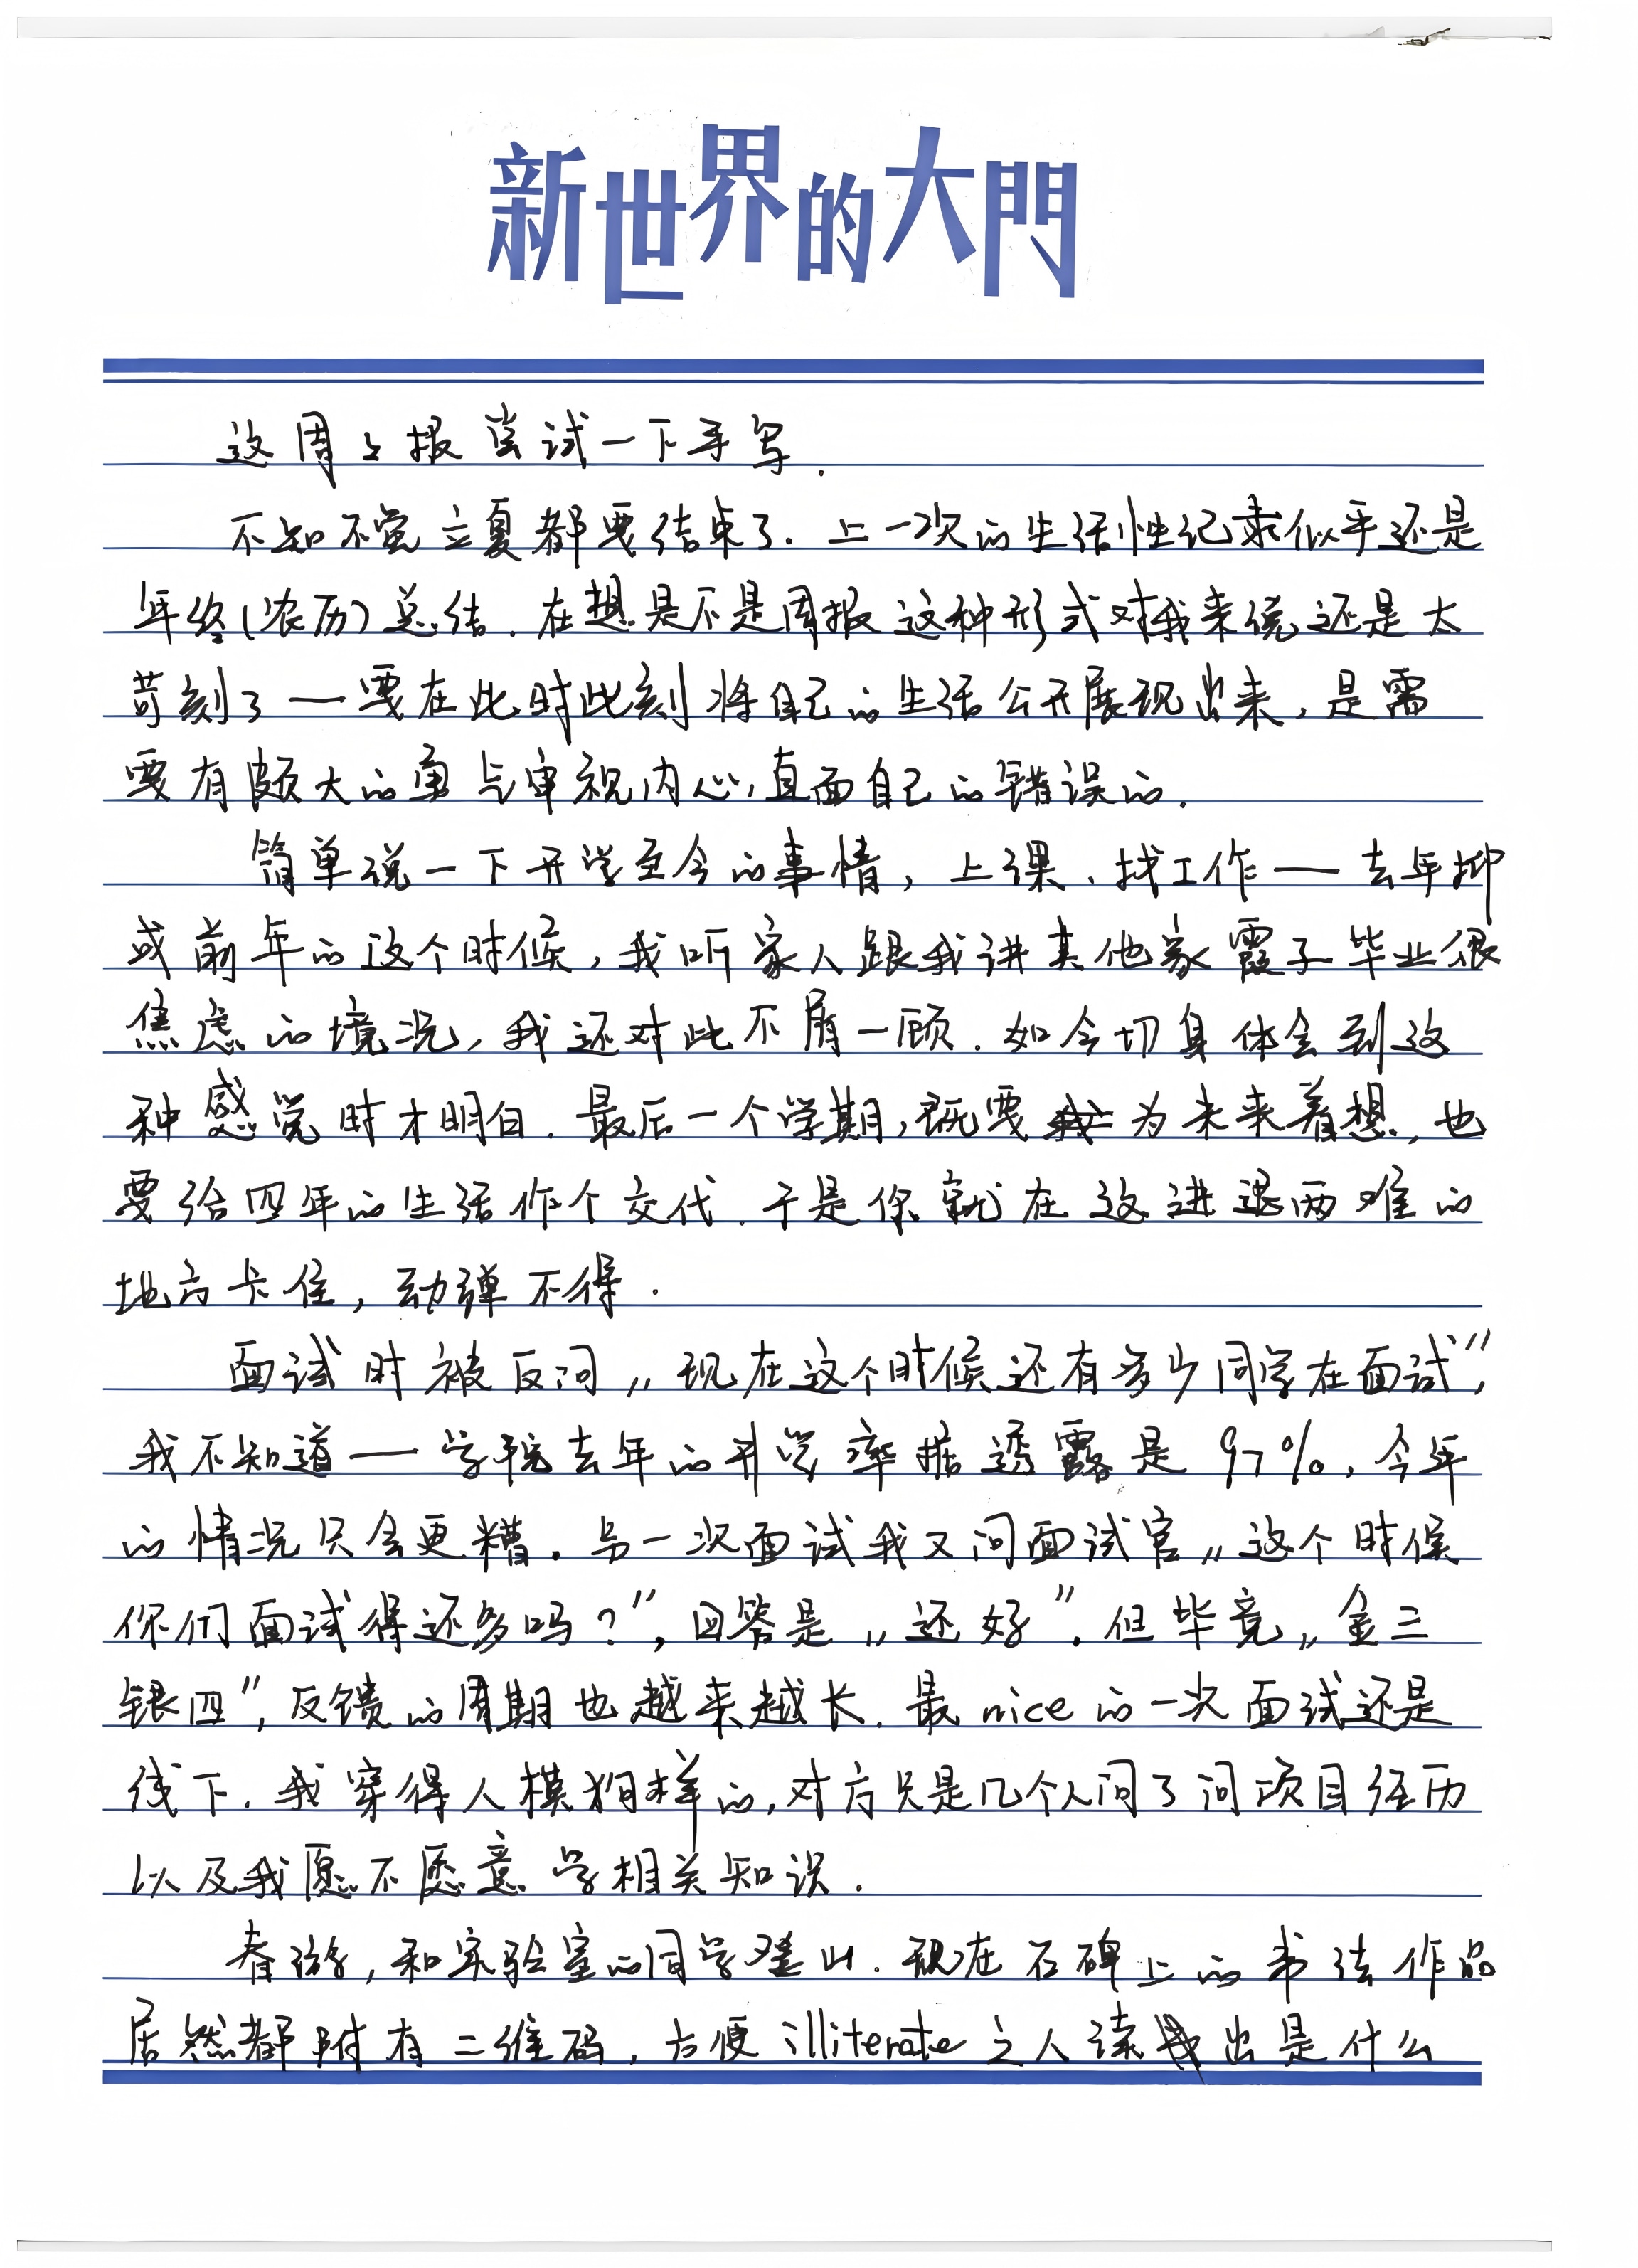 新世界的大門
这周周报尝试一下手写.
不知不觉立夏都要结束了. 上一次的生活性记录似乎还是
年终(农历)总结. 在想是不是周报这种形式对我来说还是太
苛刻了 — 要在此时此刻将自己的生活公开展现出来, 是需
要有颇大的勇与审视内心, 直面自己的错误的.
简单说一下开学至今的事情, 上课、找工作 — 去年抑
或前年的这个时候, 我听家人跟我讲其他家孩子毕业很
焦虑的境况, 我还对此不屑一顾. 如今切身体会到这
种感觉时才明白. 最后一个学期, 既要为未来着想, 也
要给四年的生活作个交代. 于是你就在这进退两难的
地方卡住, 动弹不得.
面试时被反问 „现在这个时候还有多少同学在面试”,
我不知道 — 学院去年的升学率据透露是 97%, 今年
的情况只会更糟. 另一次面试我又问面试官 „这个时候
你们面试得还多吗?”, 回答是 „还好”. 但毕竟 „金三
银四”, 反馈的周期也越来越长. 最 nice 的一次面试还是
线下. 我穿得人模狗样的, 对方只是几个人问了问项目经历
以及我愿不愿意学相关知识.
春游, 和实验室的同学爬山. 现在石碑上的书法作品
居然都附有二维码, 方便 illiterate 之人读出是什么